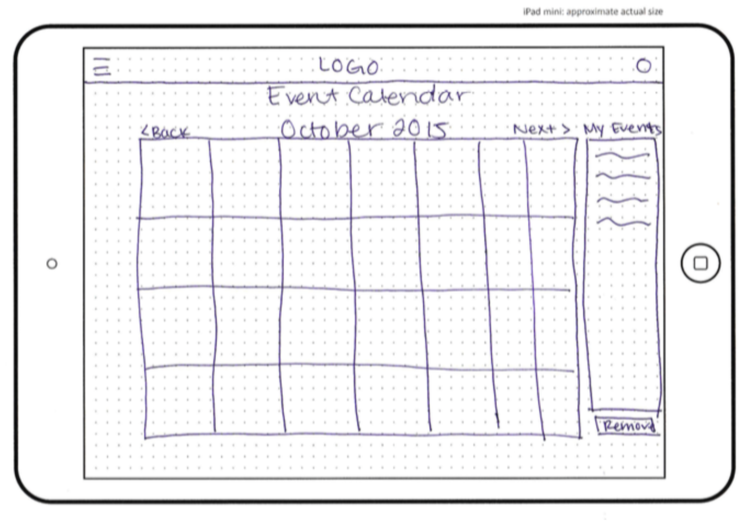 iPad mini: approximate actual size
LOGO
Event Calendar
<Back October 2015 Next> My Events
Remove